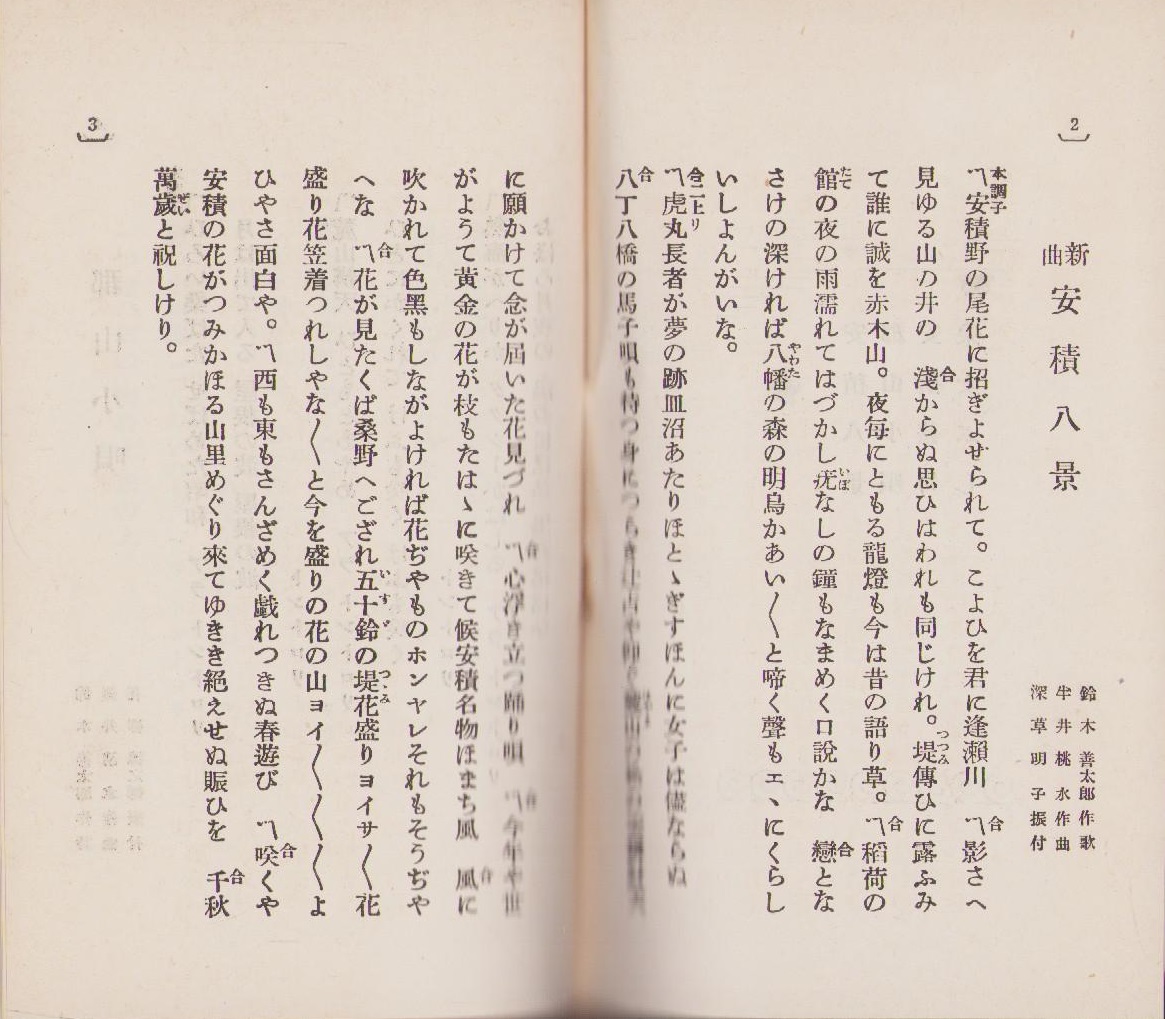 2
新曲 安積八景
鈴木善太郎作歌
坐井桃水作曲
深草明子振付
本調子
〽安積野の尾花に招ぎよせられて。こよひを君に逢瀬川 合〽影さへ
見ゆる山の井の 合淺からぬ思ひはわれも同じけれ。堤傳ひに露ふみ
つつみ
て誰に誠を赤木山。夜每にともる龍燈も今は昔の語り草。合〽稻荷の
館の夜の雨濡れてはづかし疣なしの鐘もなまめく口說かな 合戀とな
たて
いぼ
さけの深ければ八幡の森の明烏かあい〳〵と啼く聲もエヽにくらし
やわた
いしよんがいな。
合二上り
〽虎丸長者が夢の跡皿沼あたりほとゝぎすほんに女子は儘ならぬ
合八丁八橋の馬子唄も待つ身につらき
3
に願かけて念が屆いた花見づれ 合〽心浮き立つ踊り唄 合〽今年や世
がようて黃金の花が枝もたはゝに咲きて候安積名物ほまち風 合風に
吹かれて色黑もしながよければ花ぢやものホンヤレそれもそうぢや
へな 合〽花が見たくば桑野へござれ五十鈴の堤花盛りヨイサ〳〵花
いすゞ
つゝみ
盛り花笠着つれしやな〳〵と今を盛りの花の山ヨイ〳〵〳〵〳〵よ
ひやさ面白や。〽西も東もさんざめく戯れつきぬ春遊び 合〽咲くや
安積の花がつみかほる山里めぐり來てゆきき絕えせぬ賑ひを 合千秋
萬歲と祝しけり。
ぜい